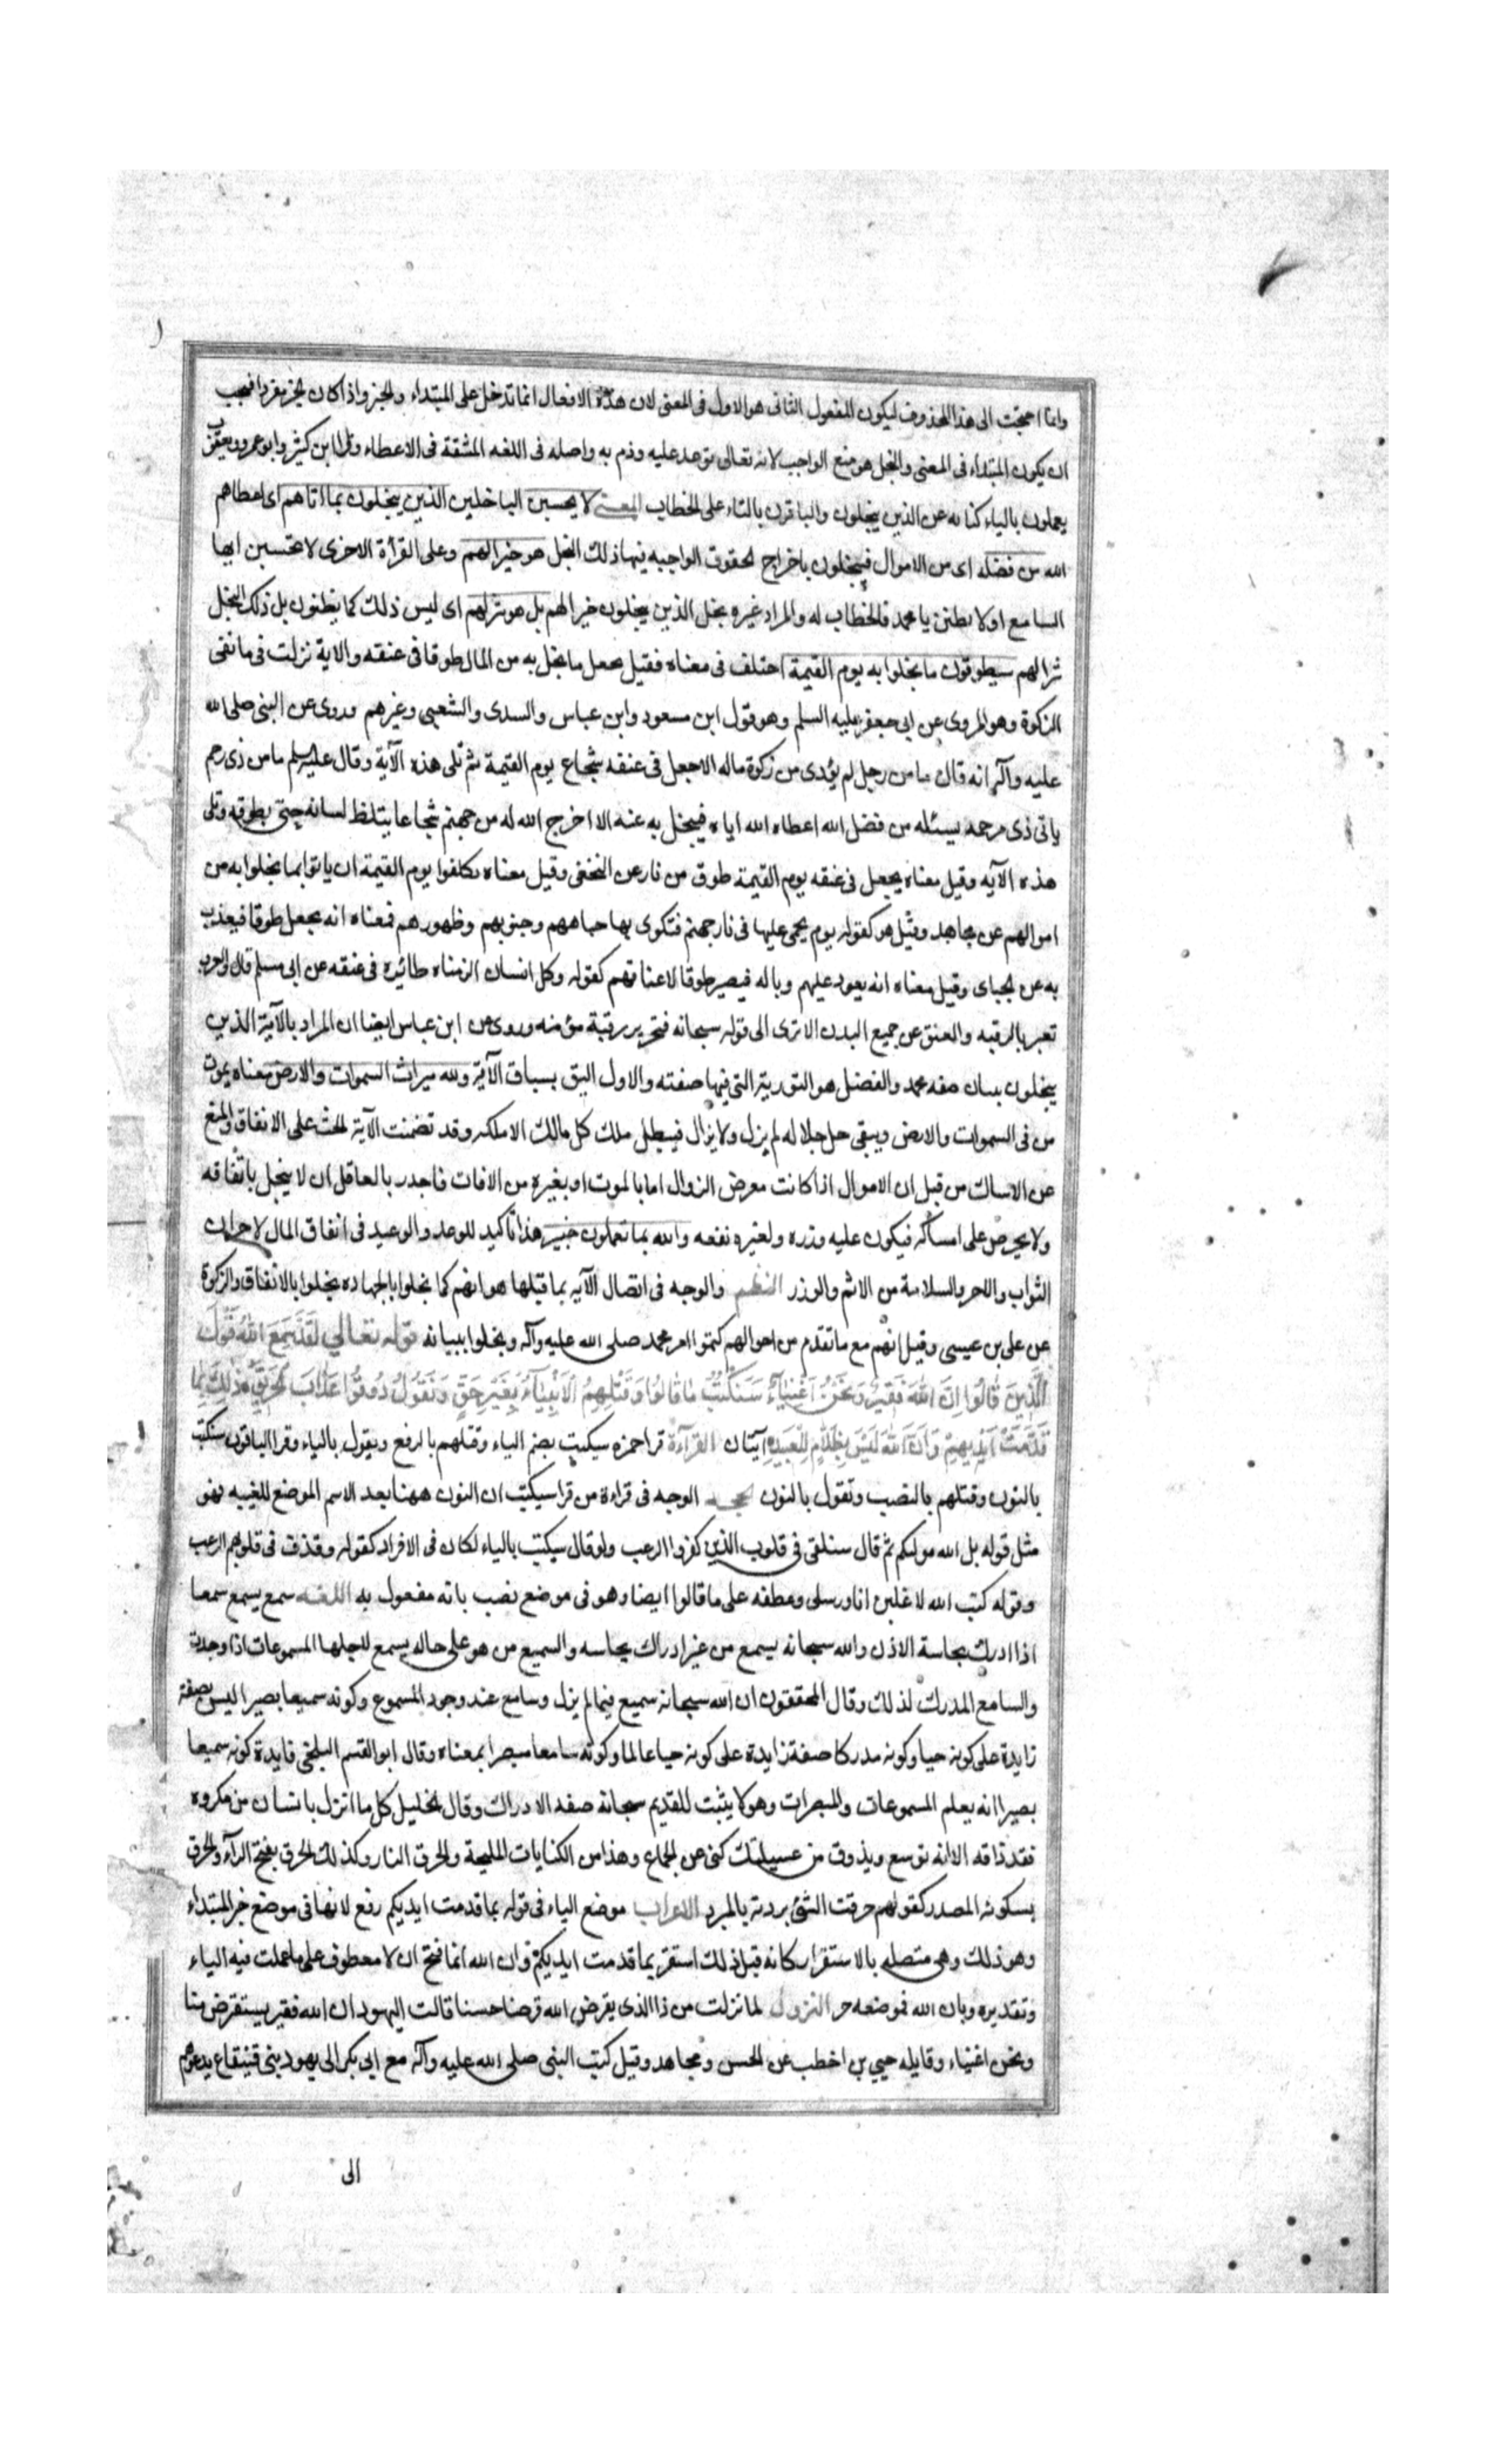 وانما احتجت الى هذا المحذوف ليكون المفعول الثانى هو الاول فى المعنى لان هذه الافعال انما تدخل على المبتداء والخبر واذا كان الخبر مفردا فيجب
ان يكون المبتداء فى المعنى والبخل هو منع الواجب لانه تعالى توعد عليه وذم به واصله فى اللغه المشقة فى الاعطاء وقرا ابن كثير وابو عمرو ويعقوب
يعملون بالياء كناية عن الذين يبخلون والباقون بالتاء على الخطاب المعنى لا يحسبن الباخلين الذين يبخلون بما اتاهم اى اعطاهم
الله من فضله اى من الاموال فيبخلون باخراج الحقوق الواجبه فيها ذلك البخل هو خيرا لهم وعلى القرأة الاخرى لا تحسبن ايها
السامع او لا تظنن يا محمد فالخطاب له والمراد غيره بخل الذين يبخلون خيرا لهم بل هو شر لهم اى ليس ذلك كما يظنون بل ذلك البخل
شرا لهم سيطوقون ما بخلوا به يوم القيمة اختلف فى معناه فقيل يجعل ما بخل به من المال طوقا فى عنقه والاية نزلت فى مانعى
الزكوة وهو المروى عن ابى جعفر عليه السلم وهو قول ابن مسعود وابن عباس والسدى والشعبى وغيرهم وروى عن النبى صلى الله
عليه وآله انه قال ما من رجل لم يؤدى من زكوة ماله الا جعل فى عنقه شجاع يوم القيمة ثم تلى هذه الآية وقال عليه السلم ما من ذى رحم
ياتى ذى رحمه يسئله من فضل الله اعطاه الله اياه فيبخل به عنه الا اخرج الله له من جهنم شجاعا يتلظ لسانه حتى يطوقه وتلى
هذه الآيه وقيل معناه يجعل فى عنقه يوم القيمة طوق من نار عن النخعى وقيل معناه يكلفوا يوم القيمة ان ياتوا بما بخلوا به من
اموالهم عن مجاهد وقيل هو كقوله يوم يحمى عليها فى نار جهنم فتكوى بها جباههم وجنوبهم وظهورهم فمعناه انه يجعل طوقا فيعذب
به عن الجباى وقيل معناه انه يعود عليهم وباله فيصير طوقا لاعناقهم كقوله وكل انسان الزمناه طائره فى عنقه عن ابى مسلم قال والعرب
تعبر بالرقبه والعنق عن جميع البدن الا ترى الى قوله سبحانه فتحرير رقبة مؤمنه وروى عن ابن عباس ايضا ان المراد بالآية الذين
يبخلون ببيان صفه محمد والفضل هو التورية التى فيها صفته والاول اليق بسياق الآية ولله ميراث السموات والارض معناه يموت
من فى السموات والارض ويبقى جل جلاله لم يزل ولا يزال فيبطل ملك كل مالك الا ملكه وقد تضمنت الآية الحث على الانفاق والمنع
عن الامساك من قبل ان الاموال اذا كانت معرض الزوال اما بالموت او بغيره من الافات فاجدر بالعاقل ان لا يبخل بانفاقه
ولا يحرص على امساكه فيكون عليه وزره ولغيره نفعه والله بما تعملون خبير هذا تاكيد للوعد والوعيد فى انفاق المال لاحراز
الثواب والاجر والسلامة من الاثم والوزر النظم والوجه فى اتصال الآيه بما قبلها هو انهم كما بخلوا بالجهاده بخلوا بالانفاق والزكوة
عن على بن عيسى وقيل انهم مع ما تقدم من احوالهم كتموا امر محمد صلى الله عليه وآله وبخلوا ببيانه قوله تعالى لَقَدْ سَمِعَ اللَّهُ قَوْلَ
الَّذِينَ قَالُوا إِنَّ اللَّهَ فَقِيرٌ وَنَحْنُ أَغْنِيَاءُ سَنَكْتُبُ مَا قَالُوا وَقَتْلَهُمُ الْأَنْبِيَاءَ بِغَيْرِ حَقٍّ وَنَقُولُ ذُوقُوا عَذَابَ الْحَرِيقِ ذَلِكَ بِمَا
قَدَّمَتْ أَيْدِيهِمْ وَأَنَّ اللَّهَ لَيْسَ بِظَلَّامٍ لِلْعَبِيدِ آيتان القرآءة قرا حمزه سيكتب بضم الياء وقتلهم بالرفع ويقول بالياء وقرا الباقون سنكتب
بالنون وقتلهم بالنصب ونقول بالنون الحجه الوجه فى قراءة من قرا سيكتب ان النون ههنا بعد الاسم الموضع للغيبه فهو
مثل قوله بل الله موليكم ثم قال سنلقى فى قلوب الذين كفروا الرعب ولو قال سيكتب بالياء لكان فى الافراد كقوله وقذف فى قلوبهم الرعب
وقوله كتب الله لاغلبن انا ورسلى وعطفه على ما قالوا ايضا وهو فى موضع نصب بانه مفعول به اللغه سمع يسمع سمعا
اذا ادرك بحاسة الاذن والله سبحانه يسمع من غير ادراك بحاسه والسميع من هو على حاله يسمع لاجلها المسموعات اذا وجدت
والسامع المدرك لذلك وقال المحققون ان الله سبحانه سميع فيما لم يزل وسامع عند وجود المسموع وكونه سميعا بصيرا ليس بصفة
زايدة على كونه حيا وكونه مدركا صفة زايدة على كونه حيا عالما وكونه سامعا مبصرا بمعناه وقال ابو القسم البلخى فايدة كونه سميعا
بصيرا انه يعلم المسموعات والمبصرات وهو لا يثبت للقديم سبحانه صفه الادراك وقال الخليل كل ما انزل بانسان من مكروه
فقد ذاقه الا انه توسع ويذوق من عسيلتك كنى عن الجماع وهذا من الكنايات المليحة والحرق النار وكذلك الحرق بفتح الرآء والحرق
بسكونه المصدر كقولهم حرقت الشئ بردته بالمبرد الاعراب موضع الباء فى قوله بما قدمت ايديكم رفع لانها فى موضع خبر المبتداء
وهو ذلك وهى متصله بالاستقرار كانه قيل ذلك استقر بما قدمت ايديكم وان الله انما فتح ان لا معطوف على ما عملت فيه الباء
وتقديره وبان الله فموضعه جر النزول لما نزلت من ذا الذى يقرض الله قرضا حسنا قالت اليهود ان الله فقير يستقرض منا
ونحن اغنياء وقايله حيي بن اخطب عن الحسن ومجاهد وقيل كتب النبى صلى الله عليه وآله مع ابى بكر الى يهود بنى قينقاع يدعوهم
الى